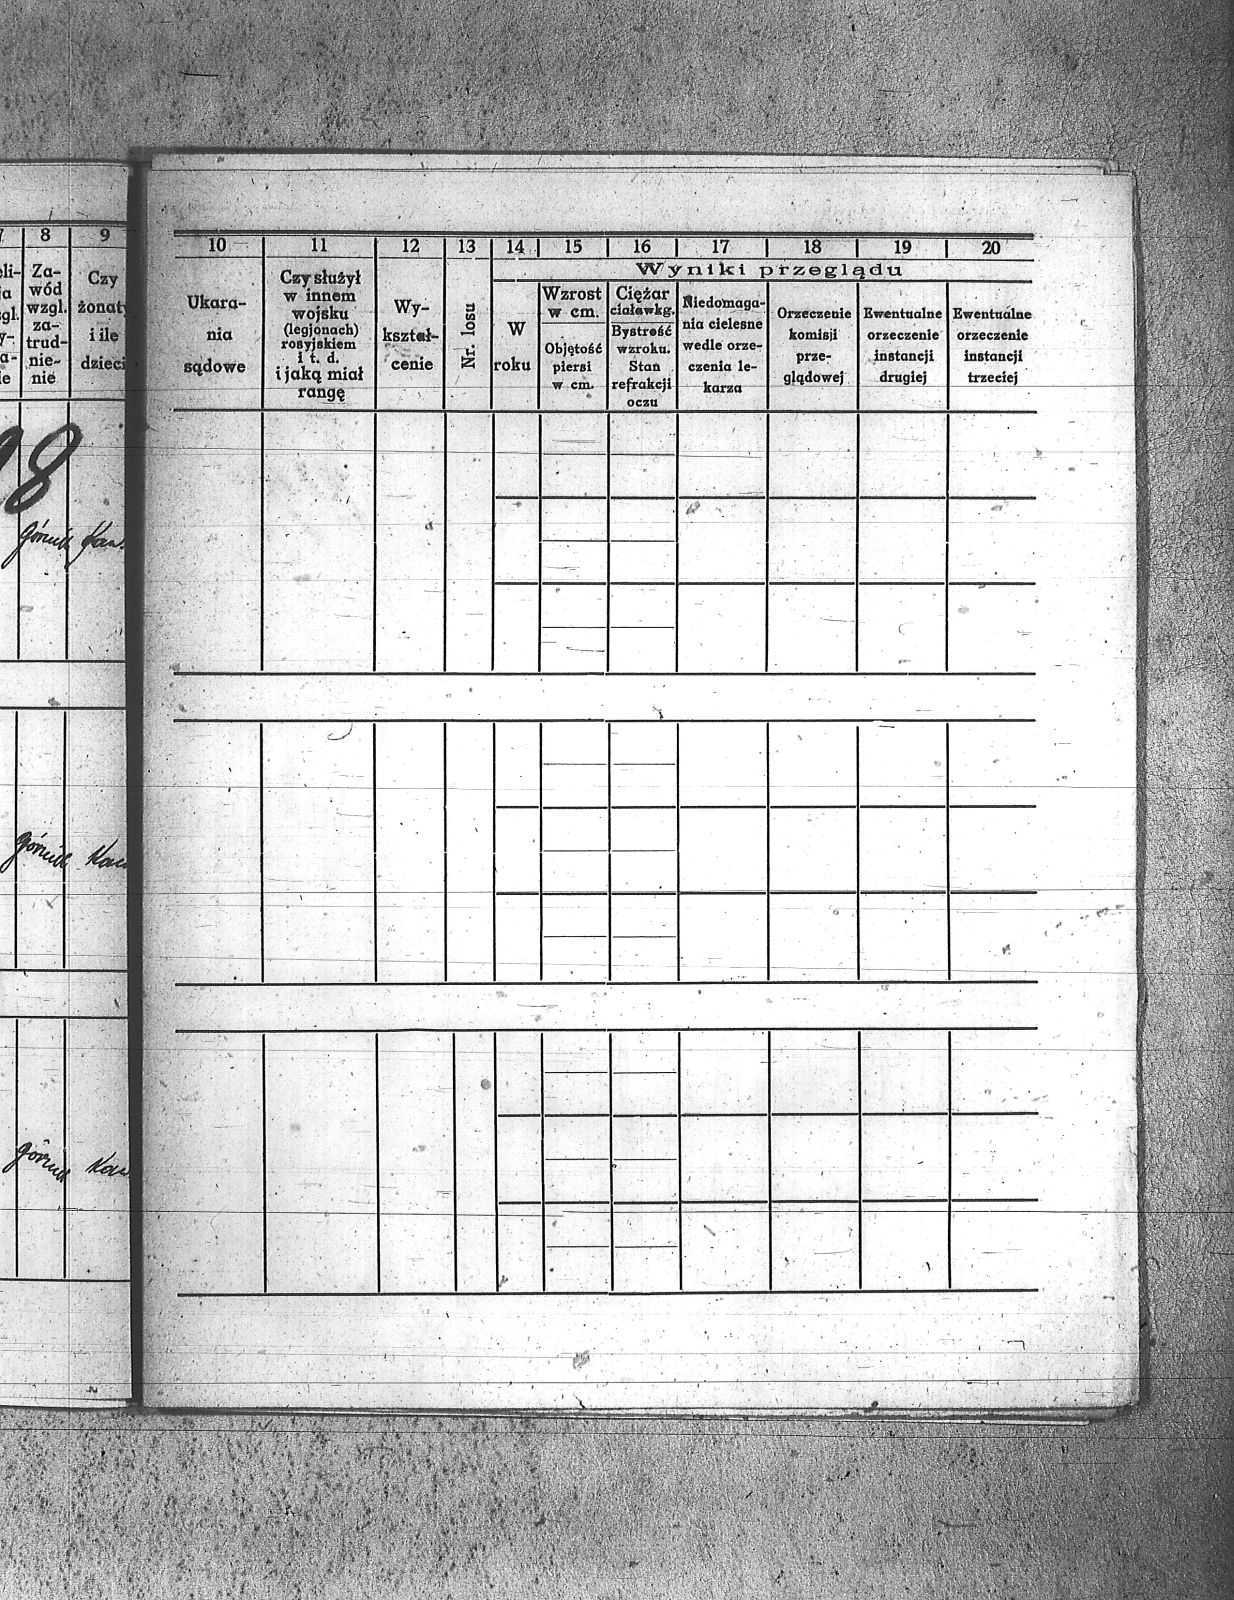 7 8 9
eli-
ja
zgl.
y-
a-
ie
Za-
wód
wzgl.
za-
trud-
nie-
nie
Czy
żonaty
i ile
dzieci
8
górnik Kaw.
górnik Kaw
górnik Kaw.
10 11 12 13 14 15 16 17 18 19 20
Wyniki przeglądu
Ukara-
nia
sądowe
Czy służył
w innem
wojsku
(legjonach)
rosyjskiem
i t. d.
i jaką miał
rangę
Wy-
kształ-
cenie
Nr. losu
W
roku
Wzrost
w cm.
Objętość
piersi
w cm.
Ciężar
ciaławkg.
Bystrość
wzroku.
Stan
refrakcji
oczu
Niedomaga-
nia cielesne
wedle orze-
czenia le-
karza
Orzeczenie
komisji
prze-
glądowej
Ewentualne
orzeczenie
instancji
drugiej
Ewentualne
orzeczenie
instancji
trzeciej